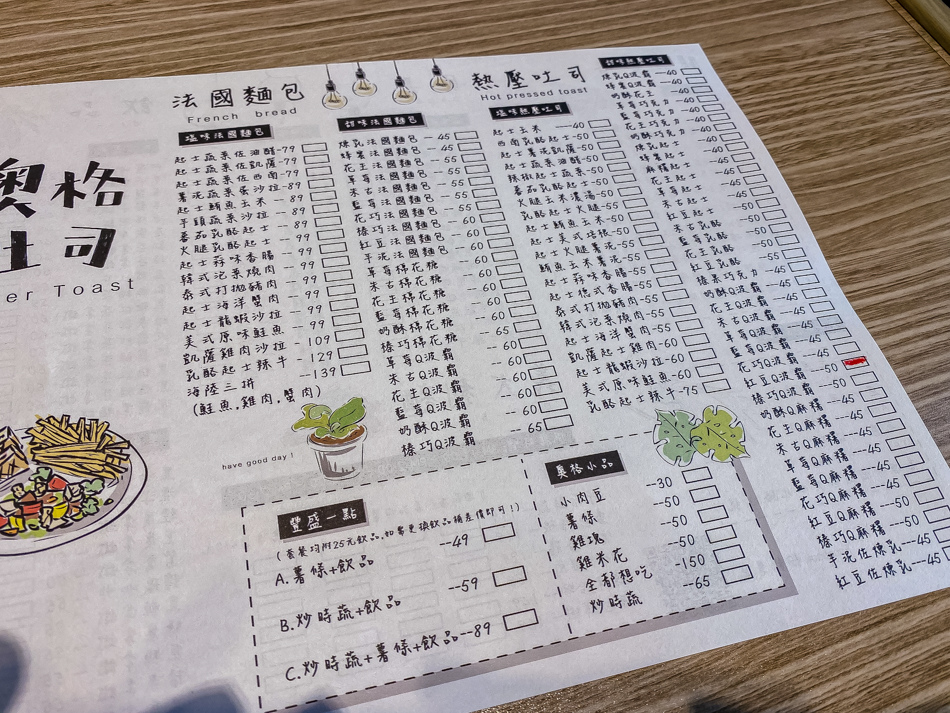 澳格
吐司
er Toast
法國麵包
French bread
塩味法國麵包
起士蔬果佐油醋-79
起士蔬果佐凱薩-79
起士蔬果佐西南-79
薯泥蔬果蛋沙拉-89
起士鮪魚玉米--89
芋頭蔬菜沙拉--89
蕃茄乳酪起士--89
火腿乳酪起士--99
起士蒜味香腸--99
韓式泡菜燒肉--99
泰式打拋豬肉--99
起士海洋蟹肉--99
起士龍蝦沙拉--99
美式原味鮭魚--99
凱薩雞肉沙拉--109
乳酪起士辣牛--129
海陸三拼--139
(鮭魚.雞肉.蟹肉)
have good day!
甜味法國麵包
煉乳法國麵包--45
蜂蜜法國麵包--45
花生法國麵包--55
草莓法國麵包--55
朱古法國麵包--55
藍莓法國麵包--55
花巧法國麵包--60
榛巧法國麵包--60
紅豆法國麵包--60
芋泥法國麵包--60
草莓棉花糖--60
朱古棉花糖--60
花生棉花糖--60
藍莓棉花糖--60
奶酥棉花糖--60
榛巧棉花糖--65
草莓Q波霸--60
朱古Q波霸--60
花生Q波霸--60
藍莓Q波霸--60
奶酥Q波霸--60
榛巧Q波霸--65
熱壓吐司
Hot pressed toast
塩味熱壓吐司
起士玉米----40
西南乳酪起士-50
起士薯泥凱薩-50
起士蔬菜油醋-50
辣椒起士蔬菜-50
蕃茄乳酪起士-50
火腿玉米濃湯-50
乳酪起士火腿-50
起士鮪魚玉米-50
起士美式培根-50
起士火腿薯泥-55
鮪魚玉米薯泥-55
起士蒜味香腸-55
起士德式香腸-55
泰式打拋豬肉-55
韓式泡菜燒肉-55
起士海洋蟹肉-55
凱薩起士雞肉-60
起士龍蝦沙拉-60
美式原味鮭魚-60
乳酪起士辣牛-75
甜味熱壓吐司
煉乳Q波霸--40
蜂蜜Q波霸--40
奶酥花生--40
草莓巧克力--40
藍莓巧克力--40
花生巧克力--40
奶酥巧克力--40
煉乳起士--40
蜂蜜起士--40
麻糬起士--45
花生起士--45
草莓起士--45
朱古起士--45
紅豆起士--50
藍莓乳酪--50
花生乳酪--50
紅豆乳酪--50
榛果巧克力--45
奶酥Q波霸--45
花生Q波霸--45
朱古Q波霸--45
草莓Q波霸--45
藍莓Q波霸--45
花巧Q波霸--50
紅豆Q波霸--50
榛巧Q波霸--50
奶酥Q麻糬--45
花生Q麻糬--45
朱古Q麻糬--45
草莓Q麻糬--45
藍莓Q麻糬--45
花巧Q麻糬--50
紅豆Q麻糬--50
榛巧Q麻糬--50
芋泥佐煉乳--45
紅豆佐煉乳--45
豐盛一點
(套餐均附25元飲品,如需更換飲品補差價即可!)
A.薯條+飲品--49
B.炒時蔬+飲品--59
C.炒時蔬+薯條+飲品--89
奧格小品
小肉豆--30
薯條--50
雞塊--50
雞米花--50
全都想吃-150
炒時蔬--65